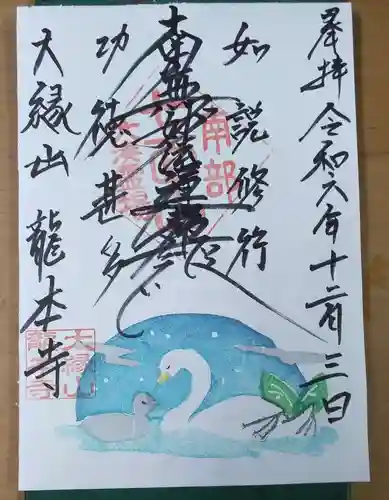 奉拝 令和六年十二月三日
如説修行
南無妙法蓮華経
功徳甚多
大縁山 龍本寺
南部
大縁山
龍本寺